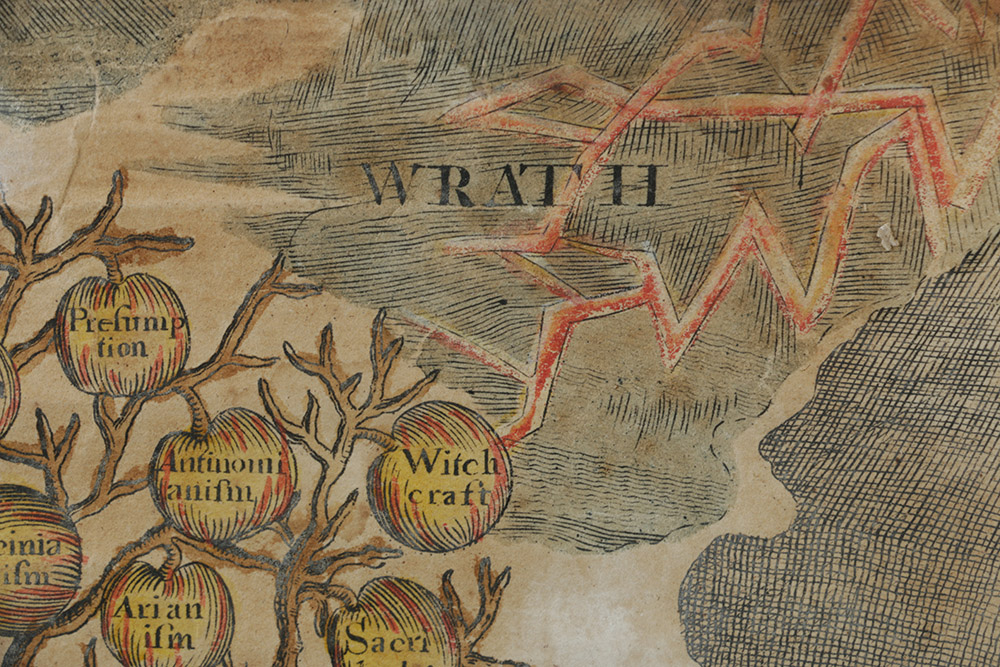 WRATH
Preſump
tion
Antinomi
aniſm
Witch
craft
cinia
iſm
Arian
iſm
Sacri